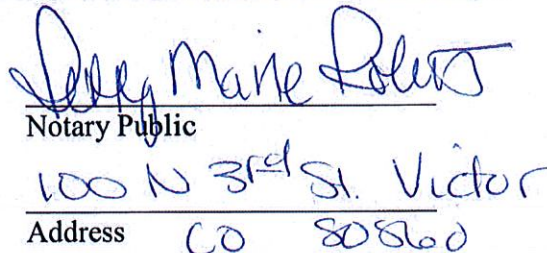 Marie Roberts
Notary Public
100 N 3rd St. Victor
Address CO 80860